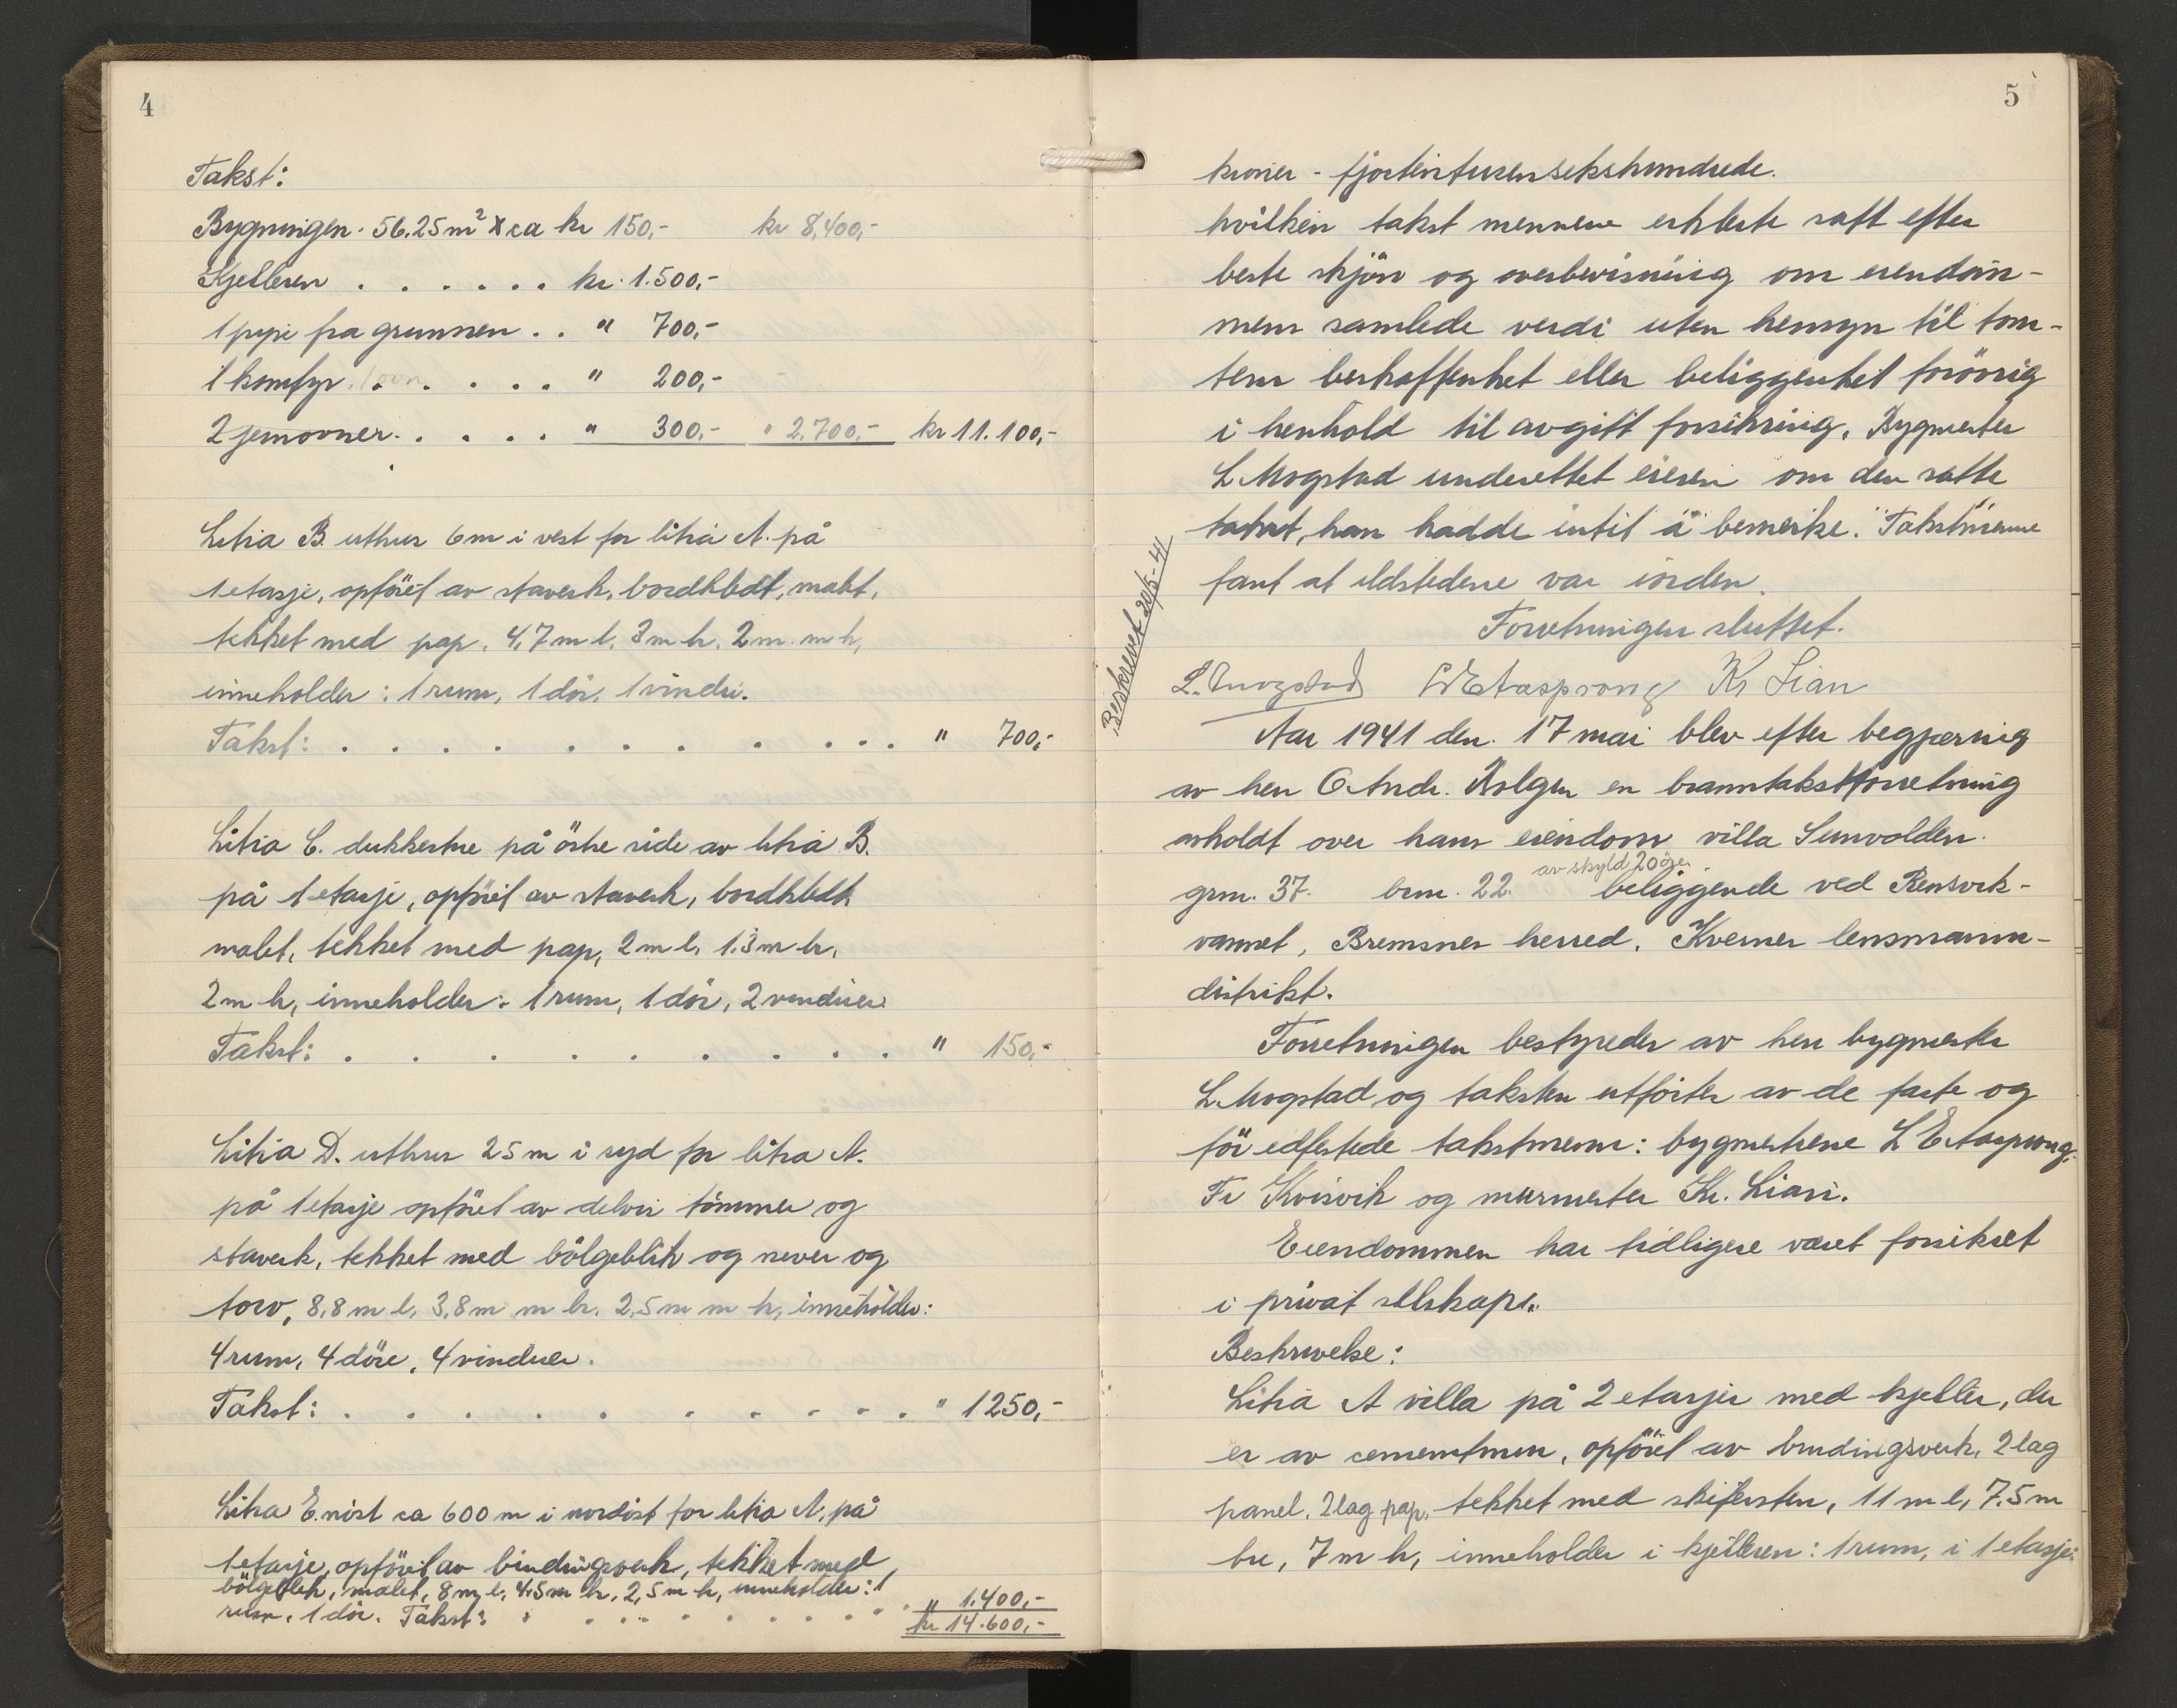 4
Takst:
Bygningen. 56.25 m² x ca kr 150,- kr 8,400,-
Kjelleren . . . . . . kr. 1.500,-
1 pipe fra grunnen . . " 700,-
1 komfyr . . . . . " 200,-
2 jernovner. . . . . " 300,- " 2.700,- kr 11.100,-
Litra B. uthus 6 m i vest for litra A. på
1 etasje, opført av staverk, bordkledt, malt,
tekket med pap, 4,7 m l, 3 m br. 2 m. m h,
inneholder: 1 rum, 1 dør, 1 vindu.
Takst: . . . . . . . . . . . " 700,-
Litra C. dukkestue på østre side av litra B.
på 1 etasje, opført av staverk, bordkledt
malet, tekket med pap, 2 m l, 1.3 m br,
2 m h, inneholder: 1 rum, 1 dør, 2 vinduer
Takst: . . . . . . . . . " 150,-
Litra D. uthus 25 m i syd for litra A.
på 1 etasje opført av delvis tømmer og
staverk, tekket med bölgeblik og never og
torv, 8,8 m l, 3,8 m m br. 2,5 m m h, inneholder:
4 rum, 4 døre, 4 vinduer.
Takst: . . . . . . . . . . . " 1250,-
Litra E. nöst ca 600 m i nordöst for litra A, på
1 etasje, opført av bindingsverk, tekket med
bölgeblik, malet, 8 m l, 4.5 m br, 2,5 m h, inneholder: 1
rum, 1 dör. Takst: . . . . . . . . " 1.400,-
kr 14.600,-
5
kroner - fjortentusensekshundrede.
hvilken takst mennene erklærte satt efter
beste skjön og overbevisning om eiendom-
mens samlede verdi uten hensyn til tom-
tens beskaffenhet eller beliggenhet forövrig
i henhold til avgitt forsikring. Bygmester
L Mogstad underettet eieren om den satte
takst, han hadde intit å bemerke. Takstmennene
fant at ildstedene var iorden.
Forretningen sluttet.
L. Mogstad L E Aasprong Kr Lian
Beskrevet 20/5-41
Aar 1941 den. 17 mai blev efter begjæring
av herr O Andr. Holgen en branntakstforretning
avholdt over hans eiendom villa Sunvolden.
av skyld 20 öre
grn. 37. brn. 22. beliggende ved Rensvik-
vannet, Bremsnes herred, Kverner lensmanns-
distrikt.
Forretningen bestyredes av herr bygmester
L. Mogstad og taksten utførtes av de faste og
før edfestede takstmenn: bygmestrene L E Aasprong,
Fr Kvisvik og murmester Kr. Lian.
Eiendommen har tidligere vært forsikret
i privat selskap.
Beskrivelse:
Litra A villa på 2 etasjer med kjeller, der
er av cementmur, opført av bindingsverk, 2 lag
panel, 2 lag pap, tekket med skifersten, 11 m l, 7.5 m
br, 7 m h, inneholder i kjelleren: 1 rum, i 1 etasje: